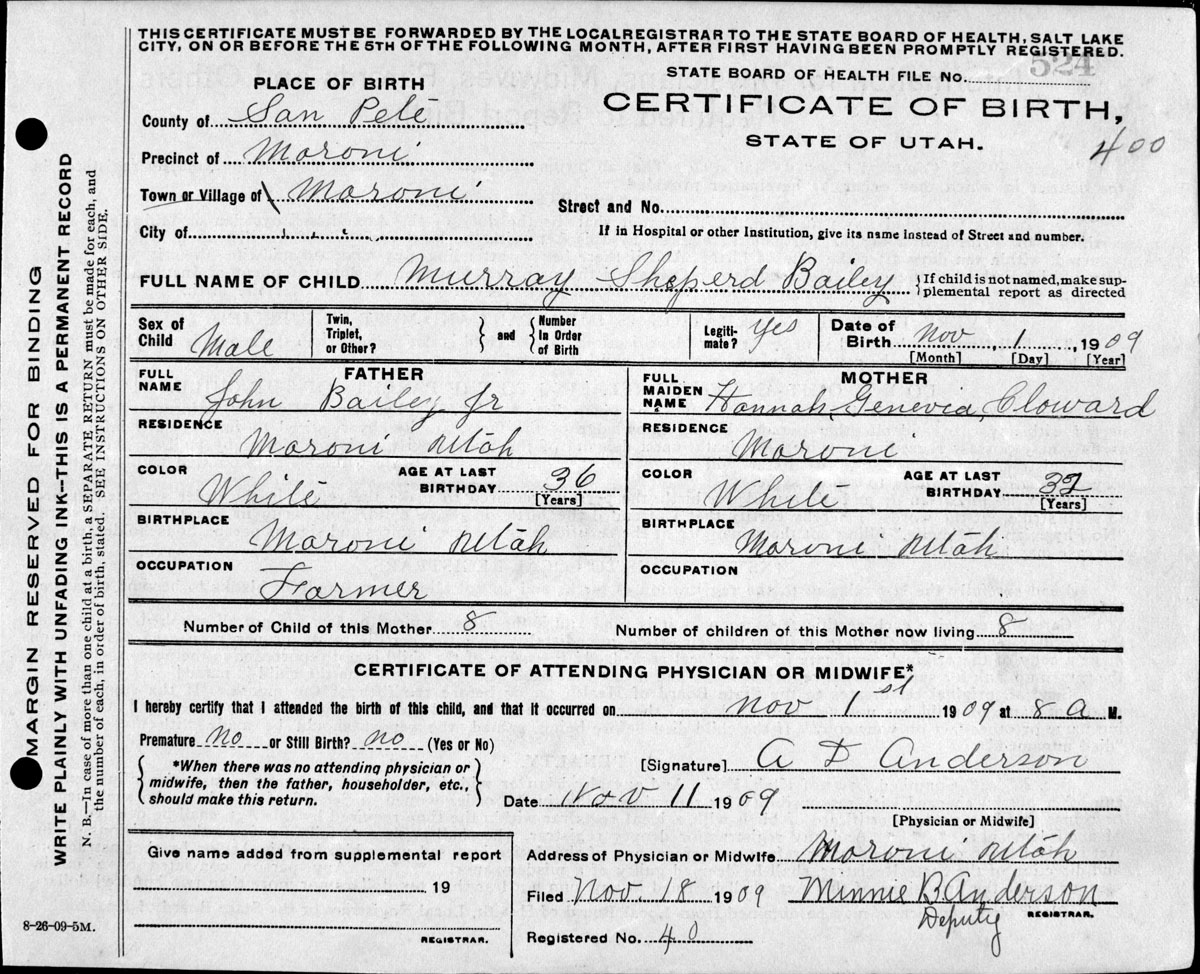 THIS CERTIFICATE MUST BE FORWARDED BY THE LOCAL REGISTRAR TO THE STATE BOARD OF HEALTH, SALT LAKE
CITY, ON OR BEFORE THE 5TH OF THE FOLLOWING MONTH, AFTER FIRST HAVING BEEN PROMPTLY REGISTERED.
STATE BOARD OF HEALTH FILE NO. 524
PLACE OF BIRTH
CERTIFICATE OF BIRTH,
STATE OF UTAH.
400
County of San Pete
Precinct of Moroni
Town or Village of Moroni
Street and No.
City of
If in Hospital or other Institution, give its name instead of Street and number.
FULL NAME OF CHILD Murray Sheperd Bailey { If child is not named, make sup-
plemental report as directed
Sex of Child Male
Twin, Triplet, or Other? } and { Number in Order of Birth
Legiti-mate? Yes
Date of Birth Nov 1, 1909
[Month] [Day] [Year]
FATHER
FULL NAME John Bailey Jr
RESIDENCE Moroni Utah
COLOR White AGE AT LAST BIRTHDAY 36
[Years]
BIRTHPLACE Moroni Utah
OCCUPATION Farmer
MOTHER
FULL MAIDEN NAME Hannah Genevia Cloward
RESIDENCE Moroni
COLOR White AGE AT LAST BIRTHDAY 32
[Years]
BIRTHPLACE Moroni Utah
OCCUPATION
Number of Child of this Mother 8 Number of children of this Mother now living 8
CERTIFICATE OF ATTENDING PHYSICIAN OR MIDWIFE*
I hereby certify that I attended the birth of this child, and that it occurred on Nov 1st 1909 at 8 a M.
Premature no or Still Birth? no (Yes or No)
{ *When there was no attending physician or
midwife, then the father, householder, etc.,
should make this return. }
[Signature] A D Anderson
Date Nov 11 1909
[Physician or Midwife]
Give name added from supplemental report
19
REGISTRAR.
Address of Physician or Midwife Moroni Utah
Filed Nov. 18 1909 Minnie B Anderson
Deputy REGISTRAR.
Registered No. 40
8-26-09-5M.
MARGIN RESERVED FOR BINDING
WRITE PLAINLY WITH UNFADING INK—THIS IS A PERMANENT RECORD
N. B.—In case of more than one child at a birth, a SEPARATE RETURN must be made for each, and
the number of each, in order of birth, stated. SEE INSTRUCTIONS ON OTHER SIDE.